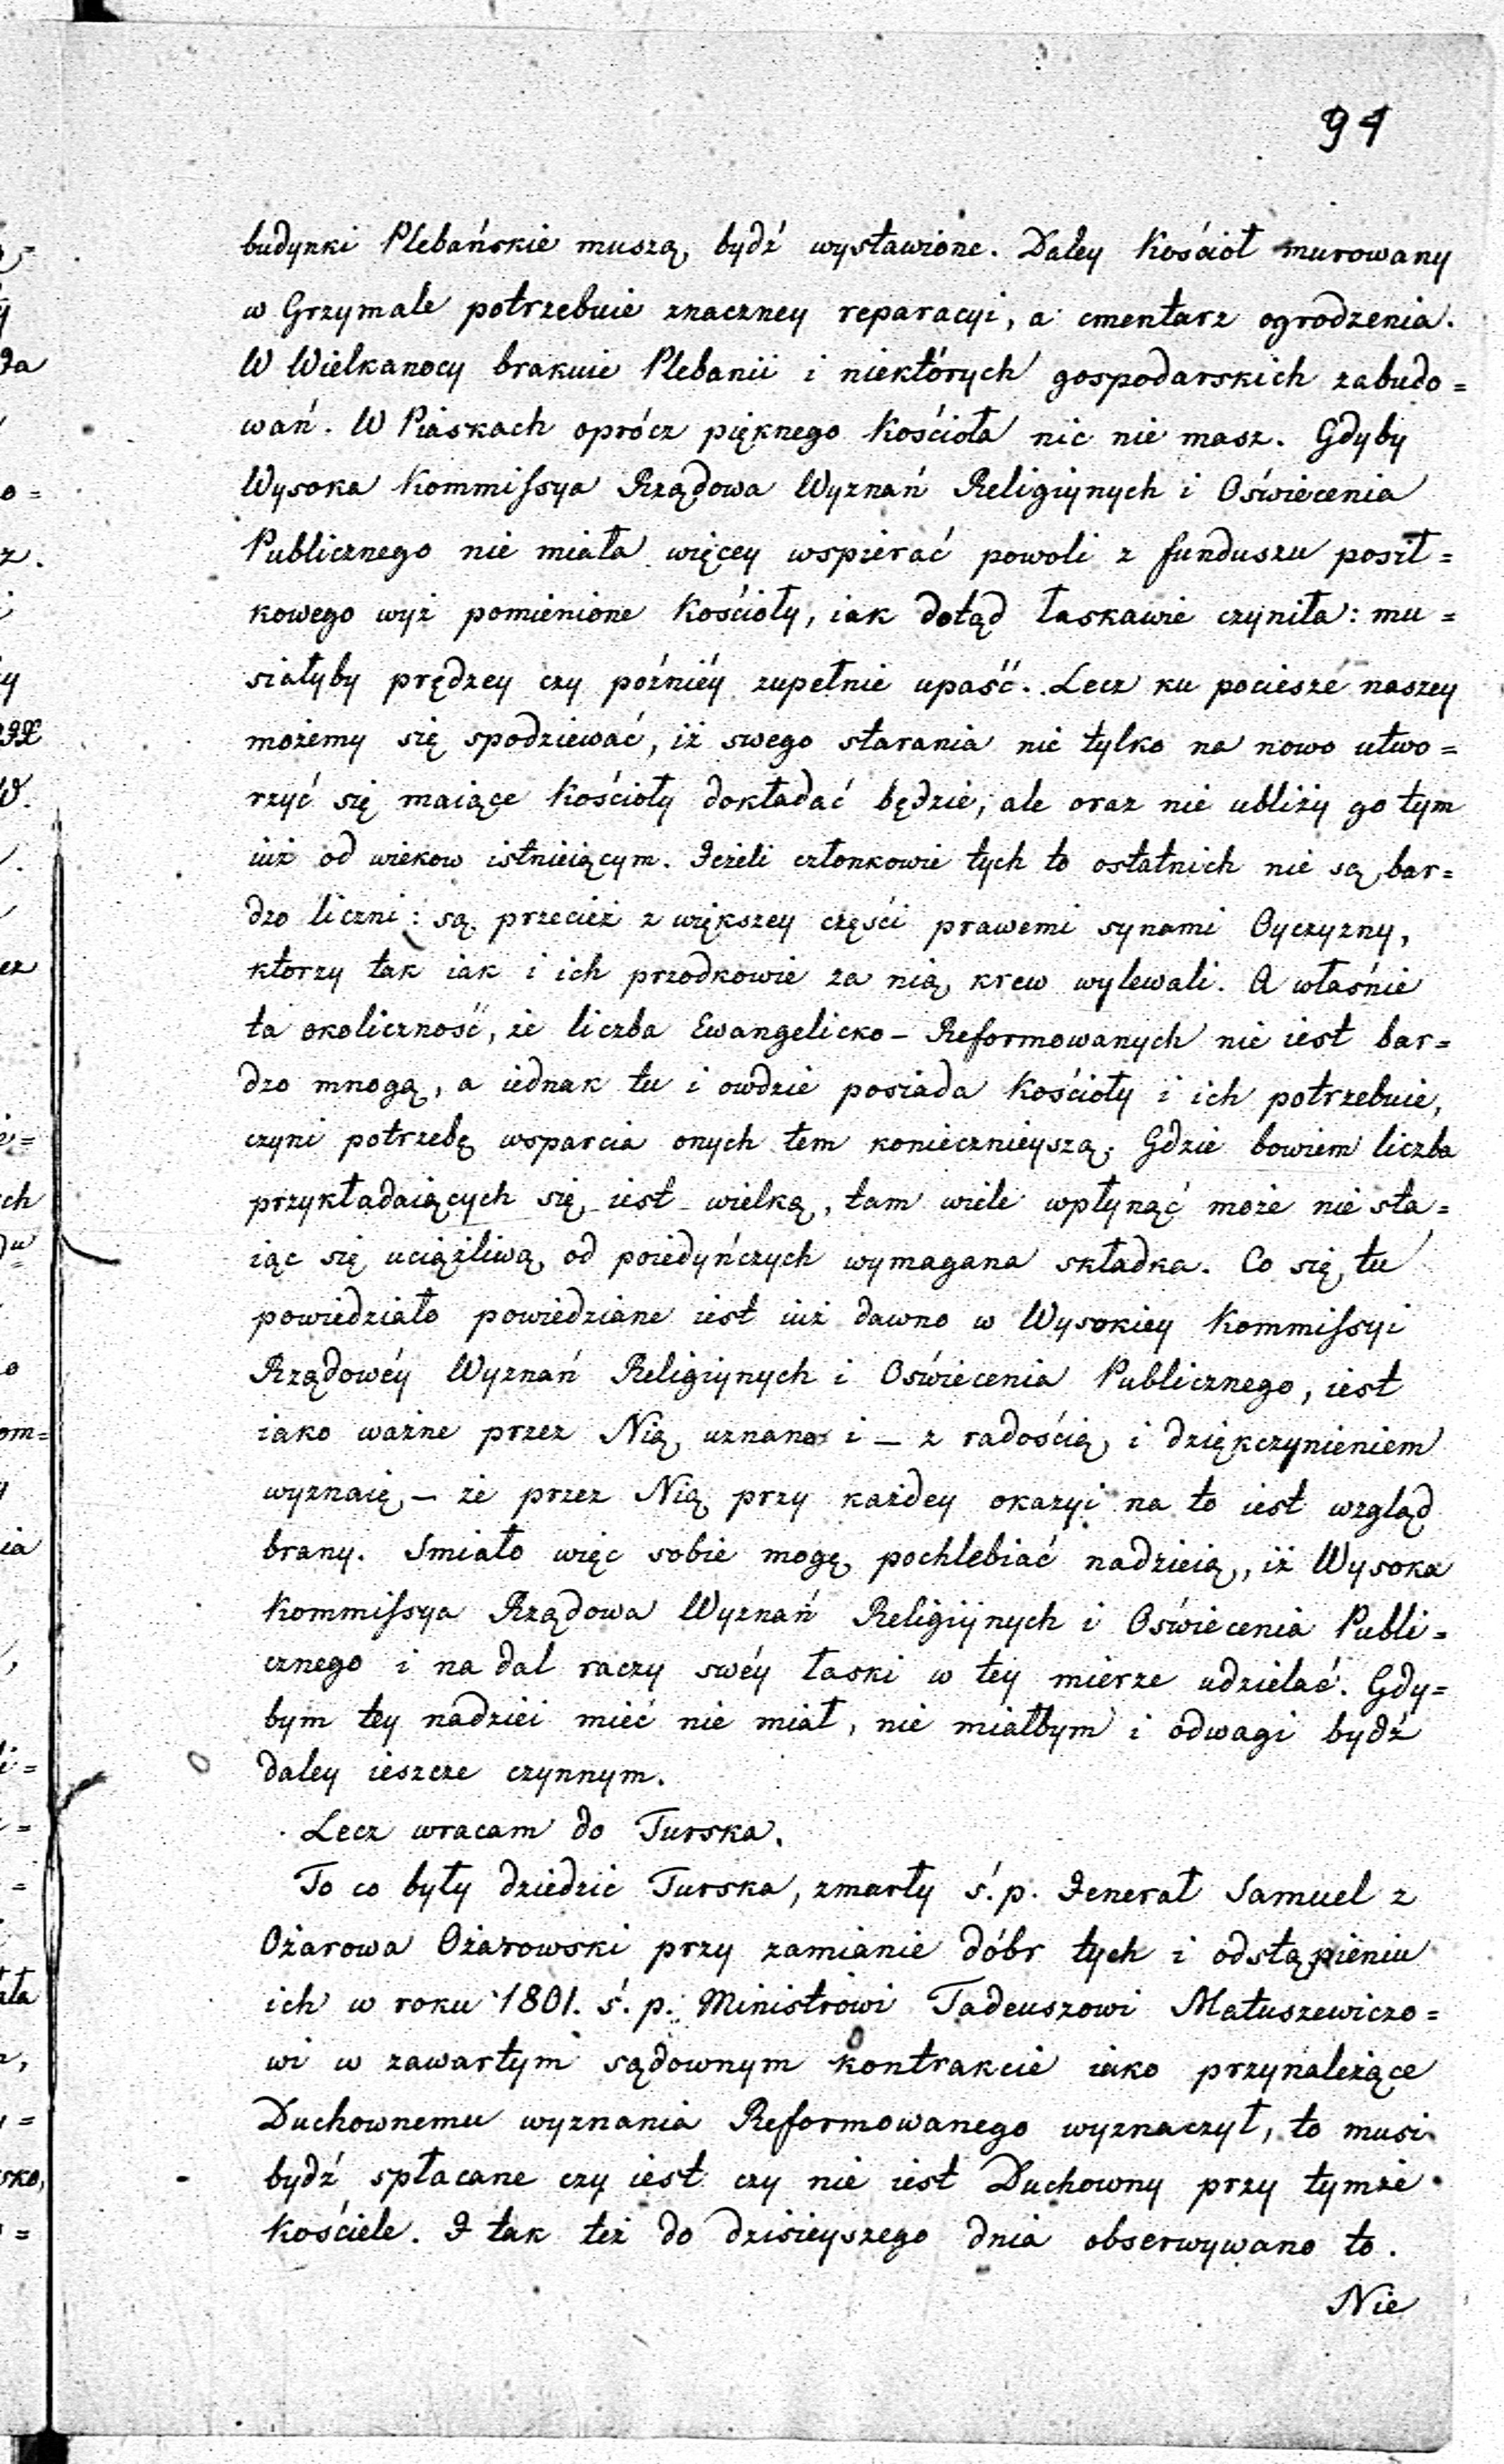 94
budynki Plebańskie muszą bydź wystawione. Daley Kościół murowany
w Grzymale potrzebuie znaczney reparacyi, a cmentarz ogrodzenia.
W Wielkanocy brakuie Plebanii i niektórych gospodarskich zabudo=
wań. W Piaskach oprócz pięknego Kościoła nic nie masz. Gdyby
Wysoka Kommissya Rządowa Wyznań Religiynych i Oświecenia
Publicznego nie miała więcey wspierać powoli z funduszu posił=
kowego wyż pomienione Kościoły, iak dotąd łaskawie czyniła: mu=
siałyby prędzey czy późniéy zupełnie upaść. Lecz ku pociesze naszey
możemy się spodziewać, iż swego starania nie tylko na nowo utwo=
rzyć się maiące Kościoły dokładać będzie, ale oraz nie ubliży go tym
iuż od wiekow istnieiącym. Jeżeli członkowie tych to ostatnich nie są bar=
dzo liczni: są przecież z większey części prawemi synami Oyczyzny,
ktorzy tak iak i ich przodkowie za nią krew wylewali. A właśnie
ta okoliczność, że liczba Ewangelicko-Reformowanych nie iest bar=
dzo mnogą, a iednak tu i owdzie posiada Kościoły i ich potrzebuie,
czyni potrzebę wsparcia onych tem koniecznieyszą. Gdzie bowiem liczba
przykładaiących się iest wielką, tam wiele wpłynąć może nie sta=
iąc się uciążliwą od poiedyńczych wymagana składka. Co się tu
powiedziało powiedziane iest iuż dawno w Wysokiey Kommissyi
Rządowéy Wyznań Religiynych i Oświecenia Publicznego, iest
iako ważne przez Nią uznano i – z radością i dziękczynieniem
wyznaię – że przez Nią przy każdey okazyi na to iest wzgląd
brany. Smiało więc sobie mogę pochlebiać nadzieią, iż Wysoka
Kommissya Rządowa Wyznań Religiynych i Oświecenia Publi=
cznego i na dal raczy swéy łaski w tey mierze udzielać. Gdy=
bym tey nadziei mieć nie miał, nie miałbym i odwagi bydź
daley ieszcze czynnym.
Lecz wracam do Turska.
To co były dziedzic Turska, zmarły ś. p. Jenerał Samuel z
Ożarowa Ożarowski przy zamianie dóbr tych i odstąpieniu
ich w roku 1801. ś. p. Ministrowi Tadeuszowi Matuszewiczo=
wi w zawartym sądownym kontrakcie iako przynależące
Duchownemu wyznania Reformowanego wyznaczył, to musi
bydź spłacane czy iest czy nie iest Duchowny przy tymże
Kościele. I tak też do dzisieyszego dnia obserwywano to.
Nie